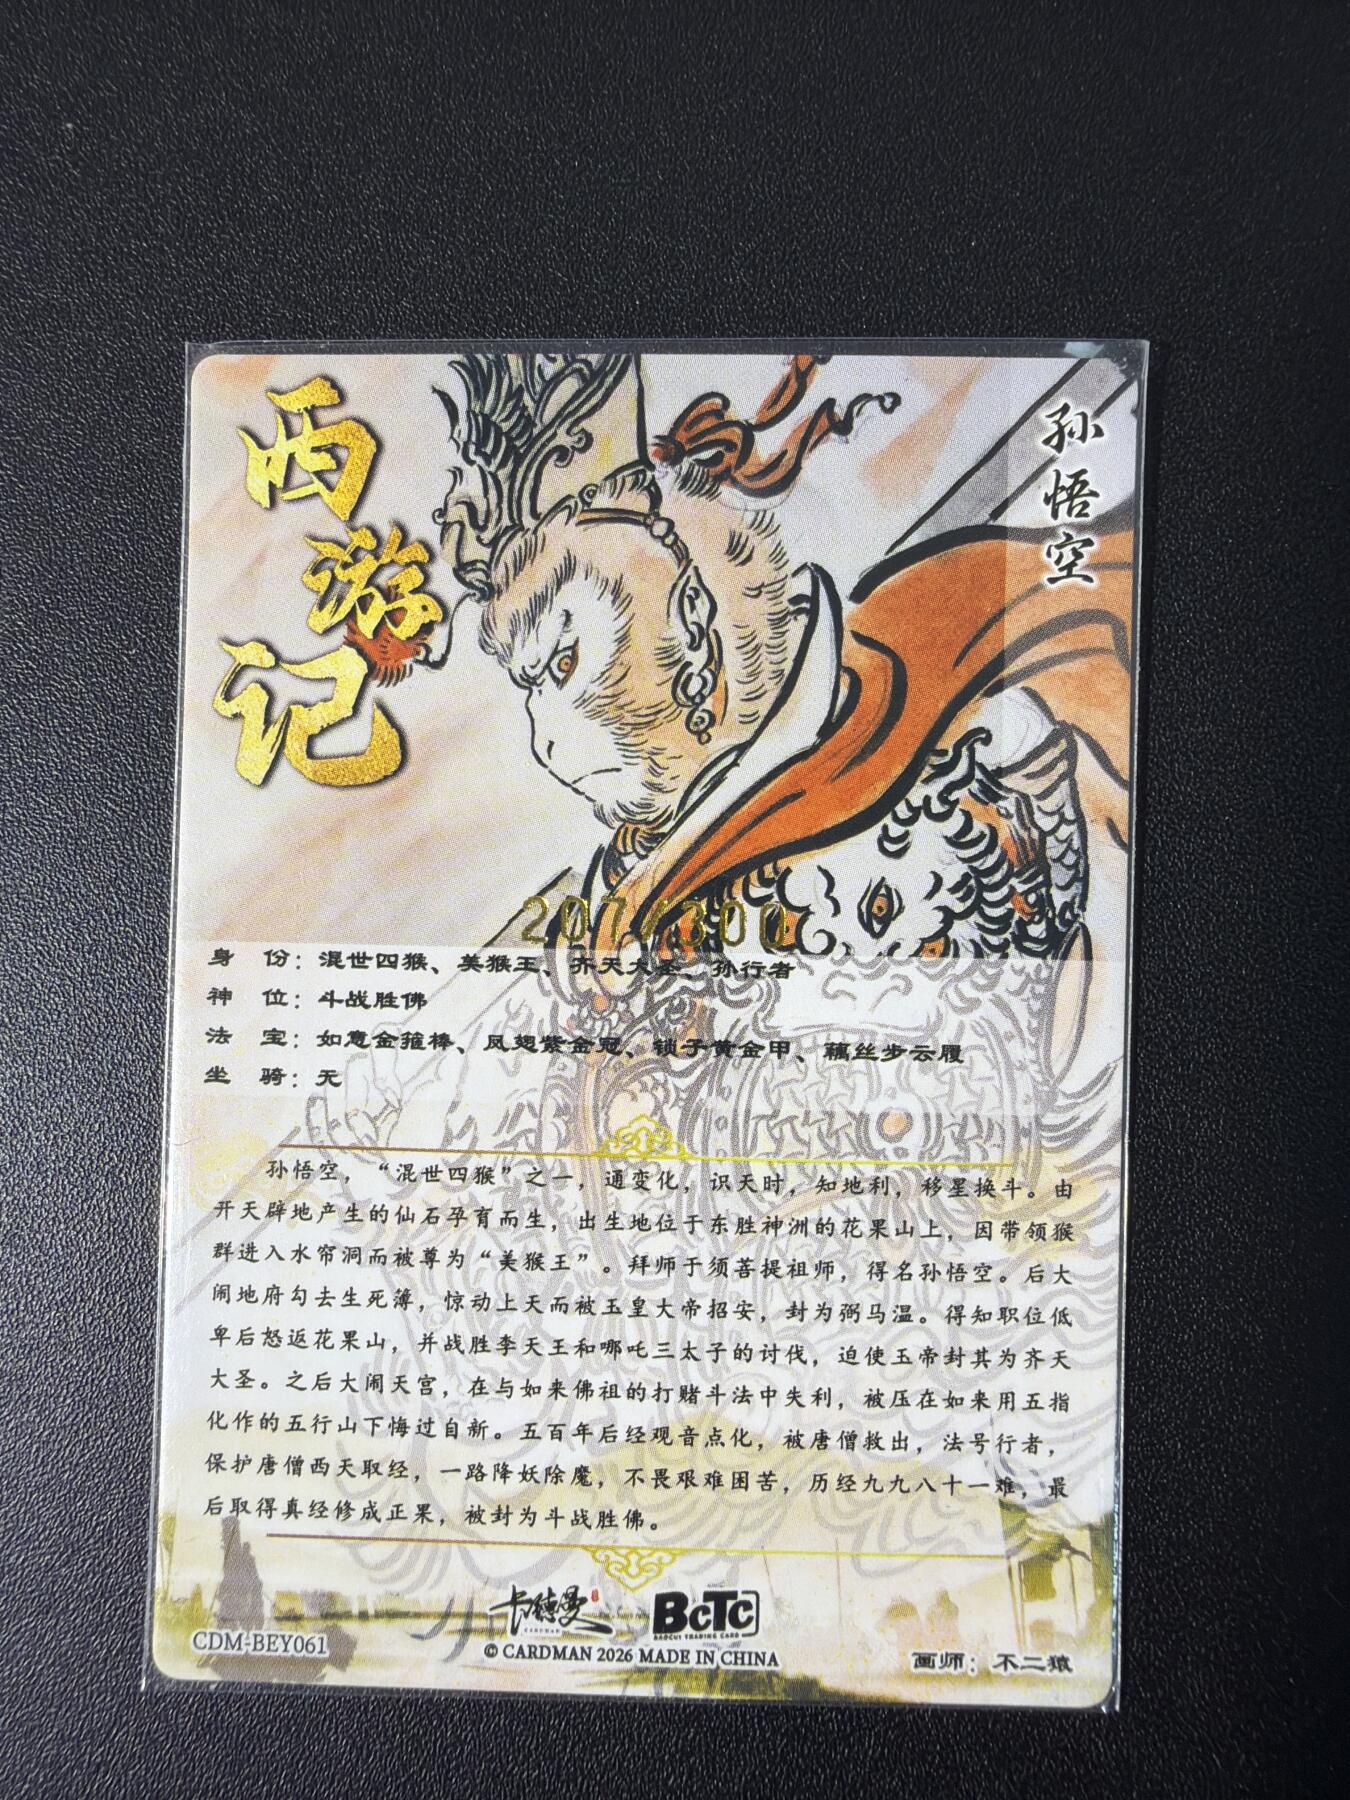 西游记
孙悟空
207/300
身 份：混世四猴、美猴王、齐天大圣、孙行者
神 位：斗战胜佛
法 宝：如意金箍棒、凤翅紫金冠、锁子黄金甲、藕丝步云履
坐 骑：无
孙悟空，“混世四猴”之一，通变化，识天时，知地利，移星换斗。由
开天辟地产生的仙石孕育而生，出生地位于东胜神洲的花果山上，因带领猴
群进入水帘洞而被尊为“美猴王”。拜师于须菩提祖师，得名孙悟空。后大
闹地府勾去生死簿，惊动上天而被玉皇大帝招安，封为弼马温。得知职位低
卑后怒返花果山，并战胜李天王和哪吒三太子的讨伐，迫使玉帝封其为齐天
大圣。之后大闹天宫，在与如来佛祖的打赌斗法中失利，被压在如来用五指
化作的五行山下悔过自新。五百年后经观音点化，被唐僧救出，法号行者，
保护唐僧西天取经，一路降妖除魔，不畏艰难困苦，历经九九八十一难，最
后取得真经修成正果，被封为斗战胜佛。
卡德曼
CARDMAN
BCTC
BAOCUI TRADING CARD
CDM-BEY061
© CARDMAN 2026 MADE IN CHINA
画师：不二猿